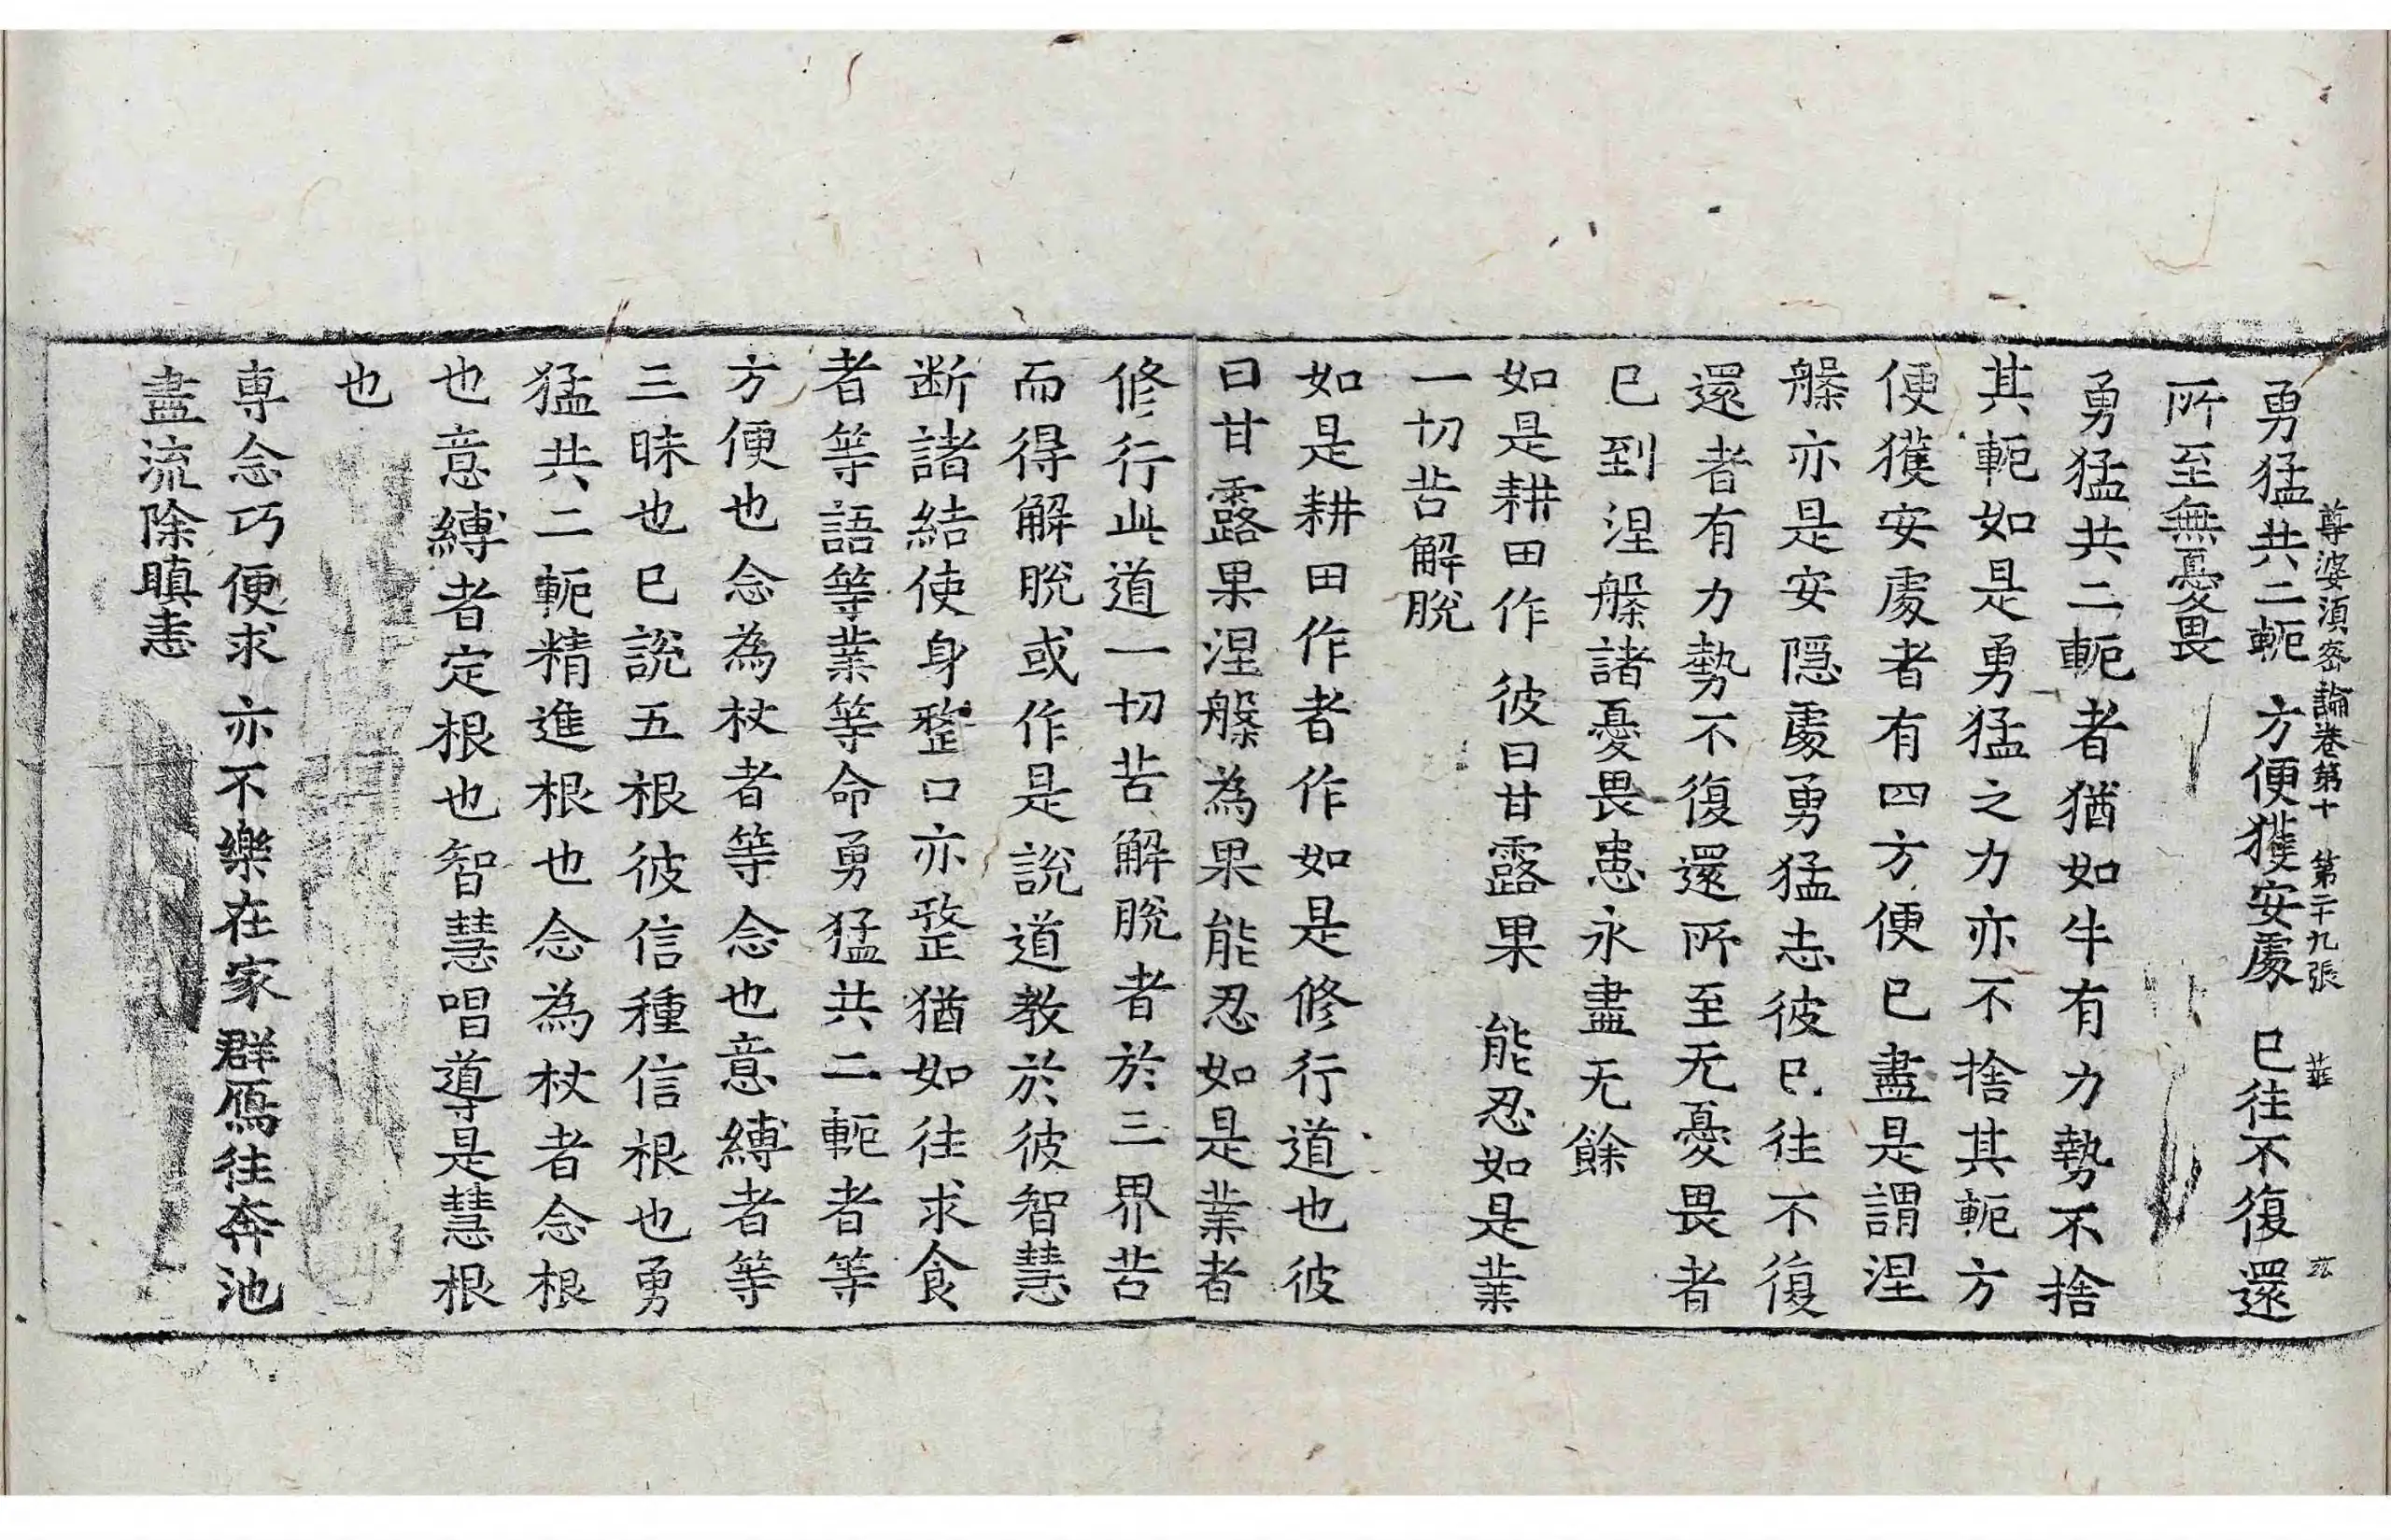 尊婆須蜜論卷第十　第二十九張　華
勇猛共二軛　方便獲安處　已往不復還
所至無憂畏
勇猛共二軛者猶如牛有力勢不捨
其軛如是勇猛之力亦不捨其軛方
便獲安處者有四方便已盡是謂涅
槃亦是安隱處勇猛志彼已往不復
還者有力勢不復還所至无憂畏者
已到涅槃諸憂畏患永盡无餘
如是耕田作　彼曰甘露果　能忍如是業
一切苦解脫
如是耕田作者作如是修行道也彼
曰甘露果涅槃為果能忍如是業者
修行此道一切苦解脫者於三界苦
而得解脫或作是說道教於彼智慧
断諸結使身整口亦整猶如往求食
者等語等業等命勇猛共二軛者等
方便也念為杖者等念也意縛者等
三昧也已說五根彼信種信根也勇
猛共二軛精進根也念為杖者念根
也意縛者定根也智慧唱導是慧根
也
専念巧便求　亦不樂在家　群鴈往奔池
盡流除瞋恚